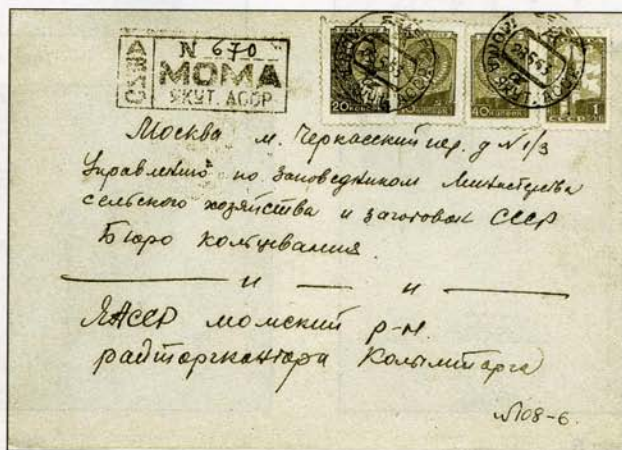 АВИА
N 670
МОМА
ЯКУТ. АССР
20 КОПЕЕК
40 КОПЕЕК
СССР 1
Москва м. Черкасский пер. д N 1/3
Управлению по заповедником Министерства
сельского хозяйства и заготовок СССР
Бюро кольцевания
и и
ЯАССР момский р-н.
райторгконтора Колымторга
N108-6.